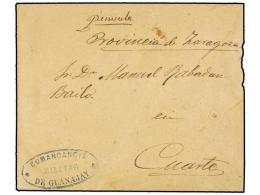 Peninsula
Provincia de Zaragoza
Sr. Dn. Manuel Rabadan
Bailo
en
Cuarte
COMANDANCIA
MILITAR
DE GUANAJAY